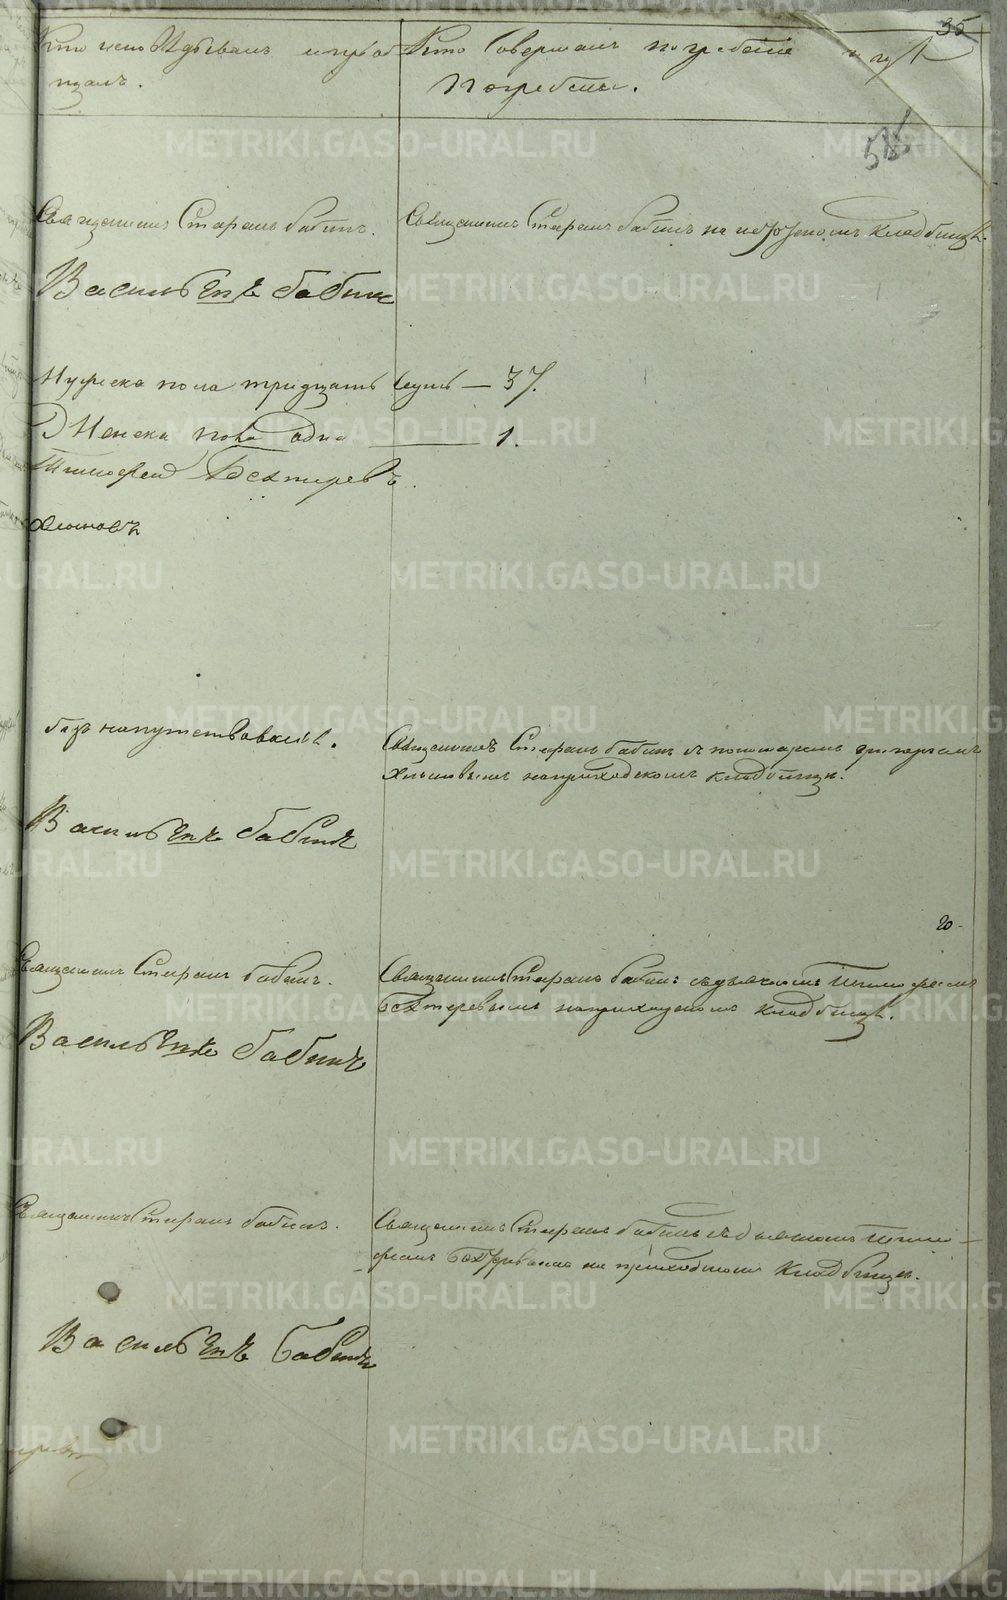 35
Кто исповѣдывалъ и прiоб Кто совершалъ погребенiе и гдѣ
щалъ. погребены.
585
Священникъ Стефанъ Бабинъ. Священникъ Стефанъ Бабинъ на приходскомъ кладбищѣ.
Васильевичъ Бабинъ
Мужеска пола тридцать семь — 37.
Женска пола одна — 1.
Тимофей Бехтеревъ.
Хлыновъ
безъ напутствованiя. Священникъ Стефанъ Бабинъ съ пономаремъ Григорiемъ
Хлыновымъ на приходскомъ кладбищѣ.
Бабинъ
20.
Священникъ Стефанъ Бабинъ. Священникъ Стефанъ Бабинъ съ дьячкомъ Тимофеемъ
Бехтеревымъ на приходскомъ кладбищѣ.
Бабинъ
Священникъ Стефанъ Бабинъ. Священникъ Стефанъ Бабинъ съ дьячкомъ Тимо-
феемъ Бехтеревымъ на приходскомъ кладбищѣ.
Бабинъ
METRIKI.GASO-URAL.RU